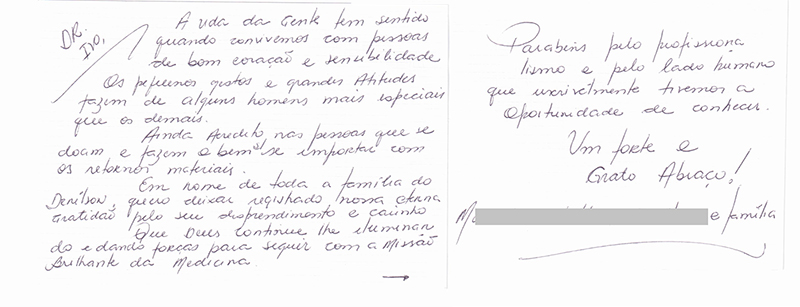 DR. Ivo,
A vida da Gente tem sentido
quando convivemos com pessoas
de bom coração e sensibilidade
Os pequenos gestos e grandes Atitudes
fazem de alguns homens mais especiais
que os demais.
Ainda Acredito, nas pessoas que se
doam e fazem o bem s/ se importar com
os retornos materiais.
Em nome de toda a família do
Denilson, quero deixar registrado nossa eterna
Gratidão pelo seu desprendimento e carinho
Que Deus continue lhe iluminan
do e dando forças para seguir com a Missão
Brilhante da Medicina.
Parabéns pelo profissiona
lismo e pelo lado humano
que incrivelmente tivemos a
oportunidade de conhecer.
Um forte e
Grato Abraço!
e família